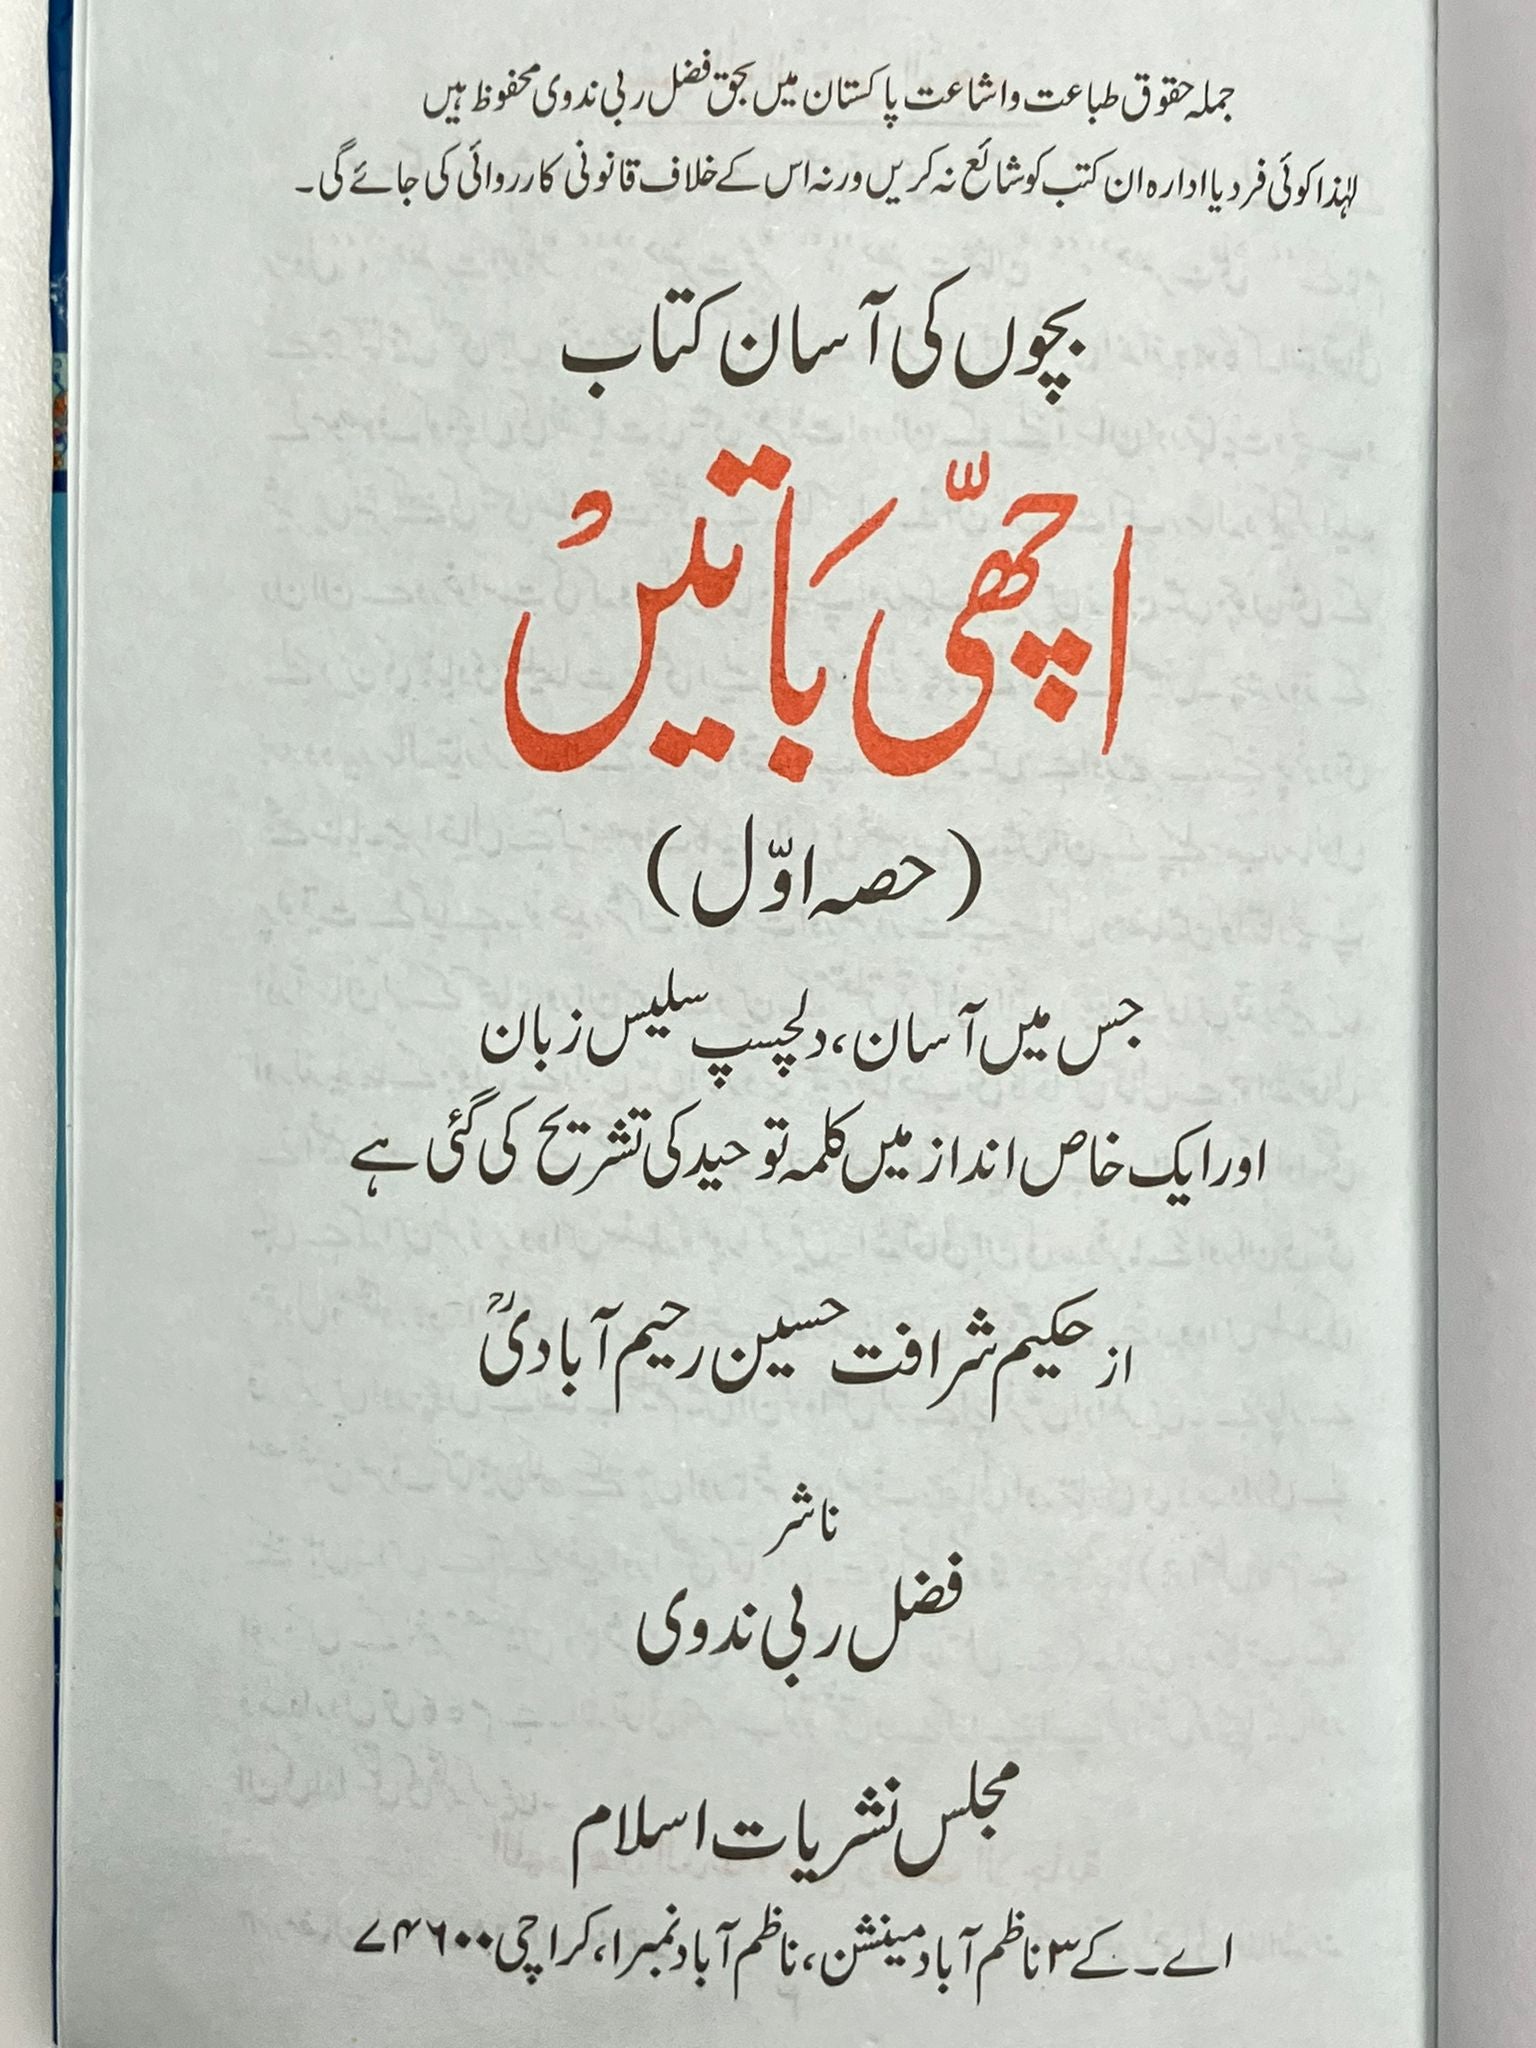 جملہ حقوق طباعت و اشاعت پاکستان میں بحق فضل ربی ندوی محفوظ ہیں
لہٰذا کوئی فرد یا ادارہ ان کتب کو شائع نہ کریں ورنہ اس کے خلاف قانونی کارروائی کی جائے گی۔
بچوں کی آسان کتاب
اچھّی بَاتیں
(حصہ اوّل)
جس میں آسان، دلچسپ سلیس زبان
اور ایک خاص انداز میں کلمہ توحید کی تشریح کی گئی ہے
از حکیم شرافت حسین رحیم آبادیؒ
ناشر
فضل ربی ندوی
مجلس نشریات اسلام
اے۔ کے ۳ ناظم آباد مینشن، ناظم آباد نمبر ۱، کراچی ۷۴۶۰۰